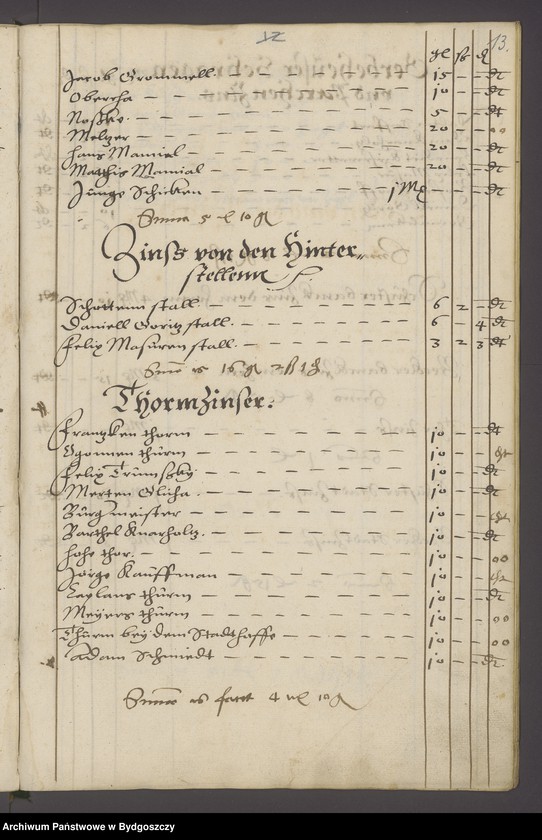 12
13.
gl ß ₰
Jacob Grommell — 15 — dt
Obercka — 10 — dt
Noßko. — 5 — dt
Meltzer — 20 — oo
Hans Mamiel — 20 — dt
Matthis Mamial — 20 — dt
Junge Schicken — j — dt
Summa 5 10
Zinß von den Hinter-
stellenn
Schottenn stall — 6 2 — dt
Daniell Goritz stall. — 6 — 4 dt
Felix Masuren stall. — 3 2 3 dt
16 2 ß 1 ₰
Thormzinser:
Frantzken thorm — 10 — dt
Ogonnen thurm — 10 —
Felix Trumßky — 10 — dt
Merten Glicha. — 10 — dt
Burgmeister — 10 —
Barthel Knarholtz. — 10 — dt
Hohe thor. — 10 — oo
Jorge Kauffman — 10 —
Caplans thurm — 10 — dt
Meyers thurm — 10 — oo
Thurm bey dem Stadthoffe — 10 — oo
Adam Schmiedt — 10 — dt
facit 4 10
Archiwum Państwowe w Bydgoszczy